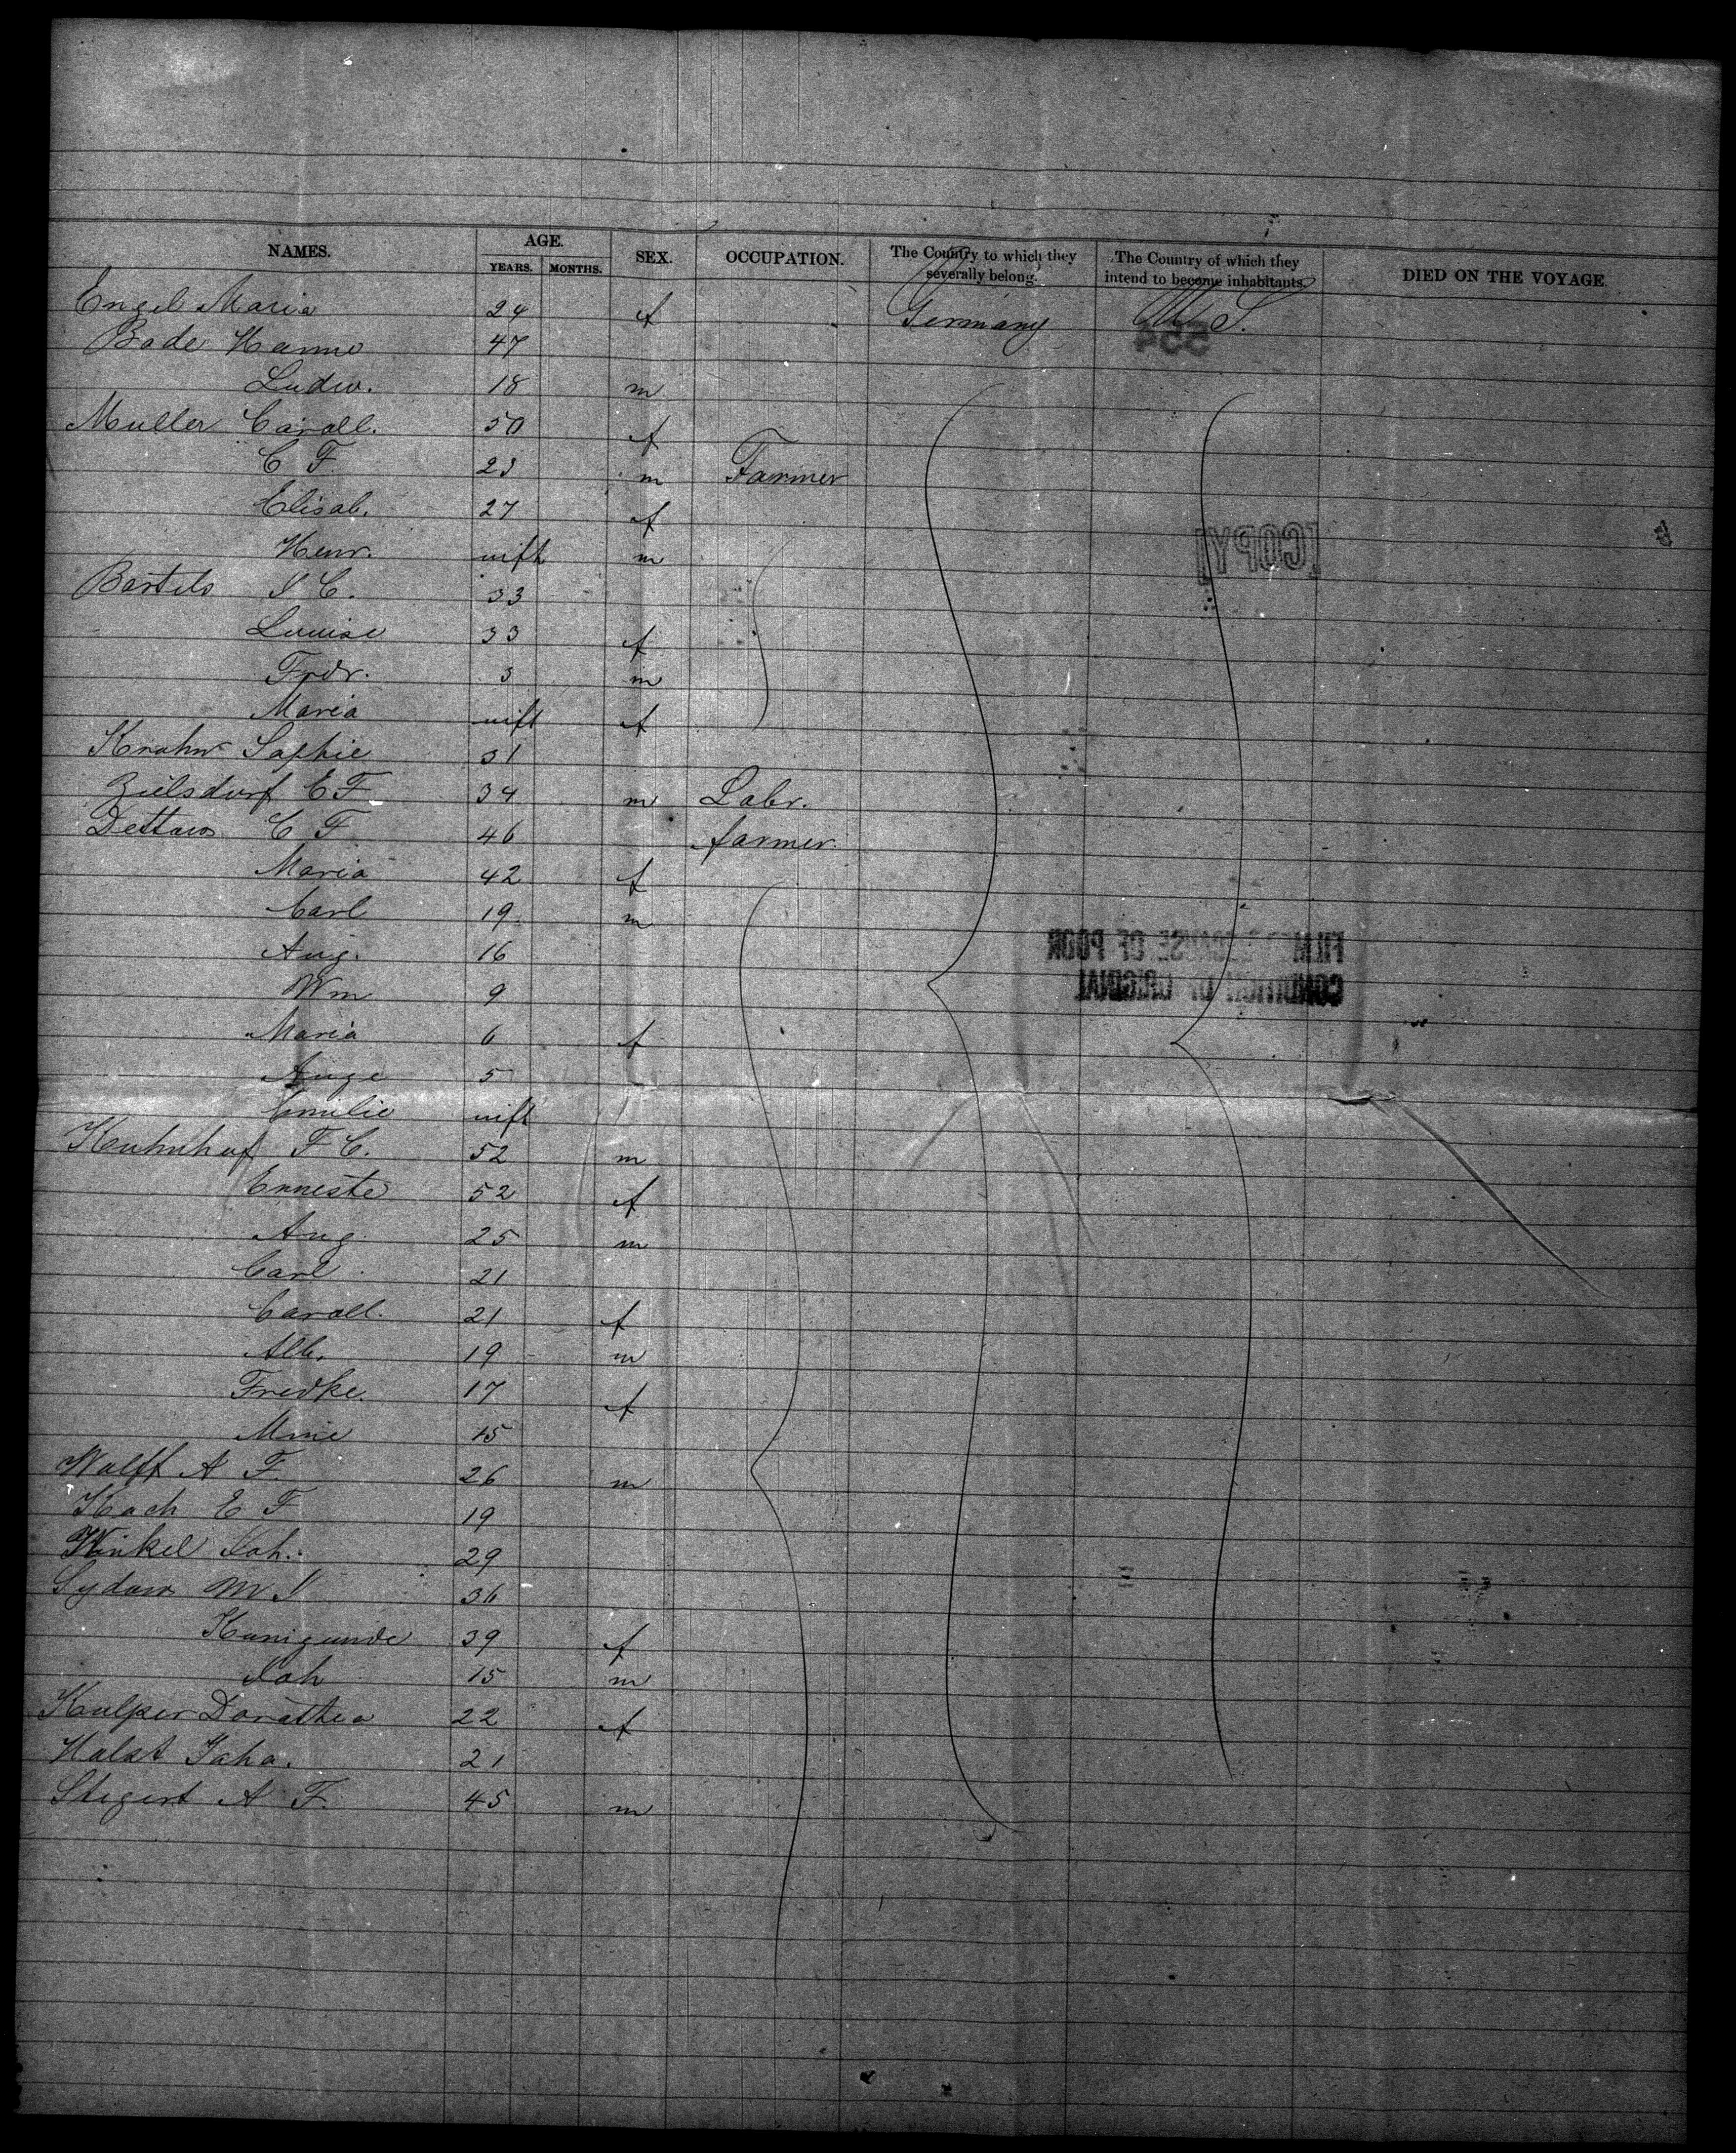 NAMES. AGE. YEARS. MONTHS. SEX. OCCUPATION. The Country to which they severally belong. The Country of which they intend to become inhabitants. DIED ON THE VOYAGE.
Engel Maria 24 f Germany U.S.
554
Bade Hanne 47
Ludw. 18 m
Muller Caroll. 50 f
C F 23 m Farmer
Elisab. 27 f
[COPY]
Henr. inft m
Bartels I C. 33
Louise 33 f
Frdr. 3 m
Maria inft f
Krahn Sophie 31
Zielsdorf C F 34 m Labr.
Dettow C F 46 farmer
Maria 42 f
Carl 19 m
Aug. 16
FILMED BECAUSE OF POOR
CONDITION OF ORIGINAL
Wm 9
Maria 6 f
Auge 5
Emilie inft
Kuhnhof F C. 52 m
Erneste 52 f
Aug. 25 m
Carl 21
Caroll. 21 f
Alb. 19 m
Fredke. 17 f
Mine 15
Wolff A F. 26 m
Koch E F 19
Winkel Joh. 29
Sydow M I 36
Kunigunde 39 f
Joh 15 m
Kulper Dorothea 22 f
Holst Joha. 21
Stegert A F. 45 m